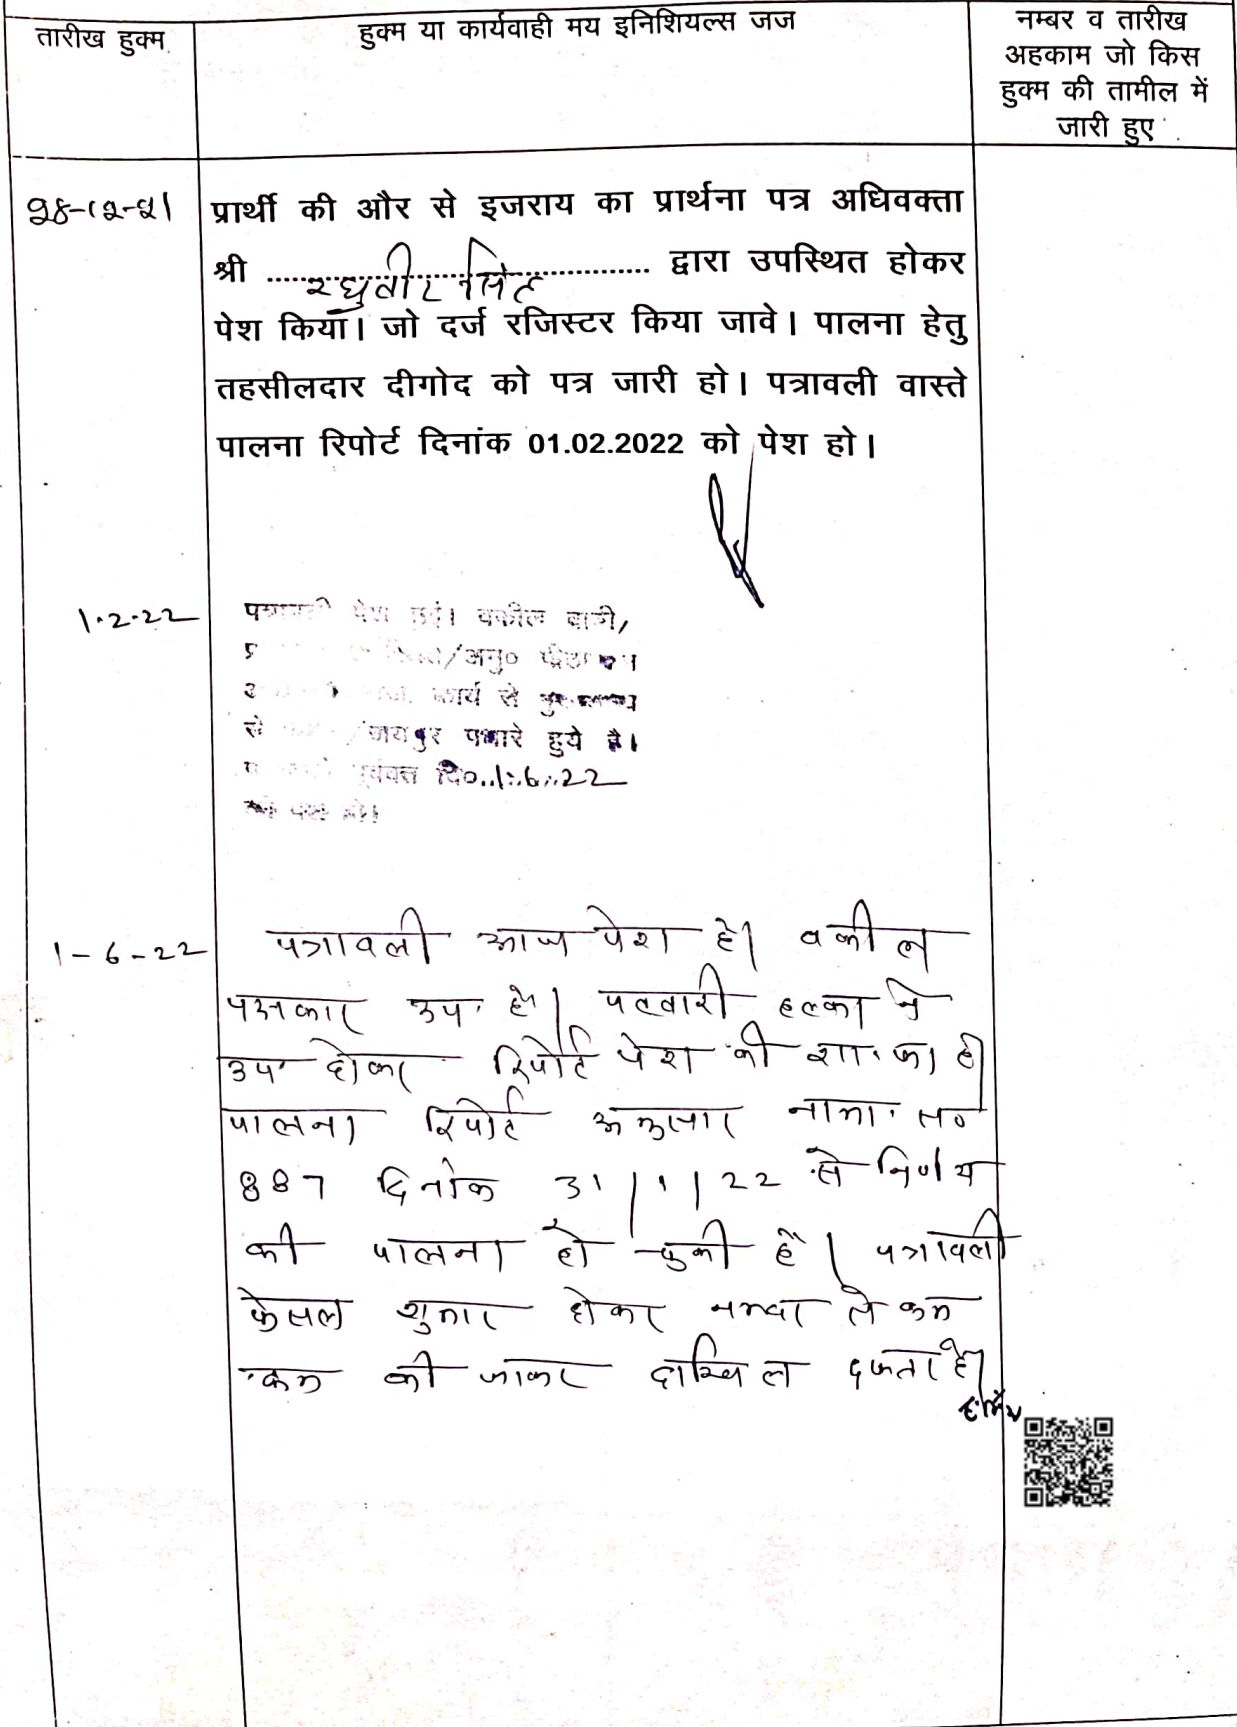 तारीख हुक्म
हुक्म या कार्यवाही मय इनिशियल्स जज
नम्बर व तारीख
अहकाम जो किस
हुक्म की तामील में
जारी हुए
प्रार्थी की और से इजराय का प्रार्थना पत्र अधिवक्ता
श्री रघुवीर सिंह द्वारा उपस्थित होकर
पेश किया। जो दर्ज रजिस्टर किया जावे। पालना हेतु
तहसीलदार दीगोद को पत्र जारी हो। पत्रावली वास्ते
पालना रिपोर्ट दिनांक 01.02.2022 को पेश हो।
1.2.22
पेश हुई। वकील
/अनु०
कार्य से
से /जयपुर पधारे हुये है।
दि०..1.6.22
1-6-22
पत्रावली आज पेश है। वकील
पक्षकार उप. है। पटवारी हल्का ने
उप होकर रिपोर्ट पेश की
पालना रिपोर्ट अनुसार नामा. सं०
887 दिनांक 31/1/22 से निर्णय
की पालना हो चुकी है। पत्रावली
फेसल शुमार होकर नम्बर से कम
की जाकर दाखिल दफ्तर है।